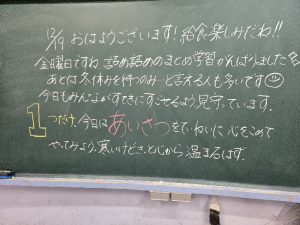 12/9 おはようございます！給食楽しみだね!!
金曜日ですね。詰め詰めのまとめ学習がんばりました
あとは冬休みを待つのみ…と言える人も多いです☺
今日もみんながすてきにすごせるよう見守っています。
1つだけ、今日はあいさつをていねいに心をこめて
やってみよう。寒いけどきっと心から温まるはず。